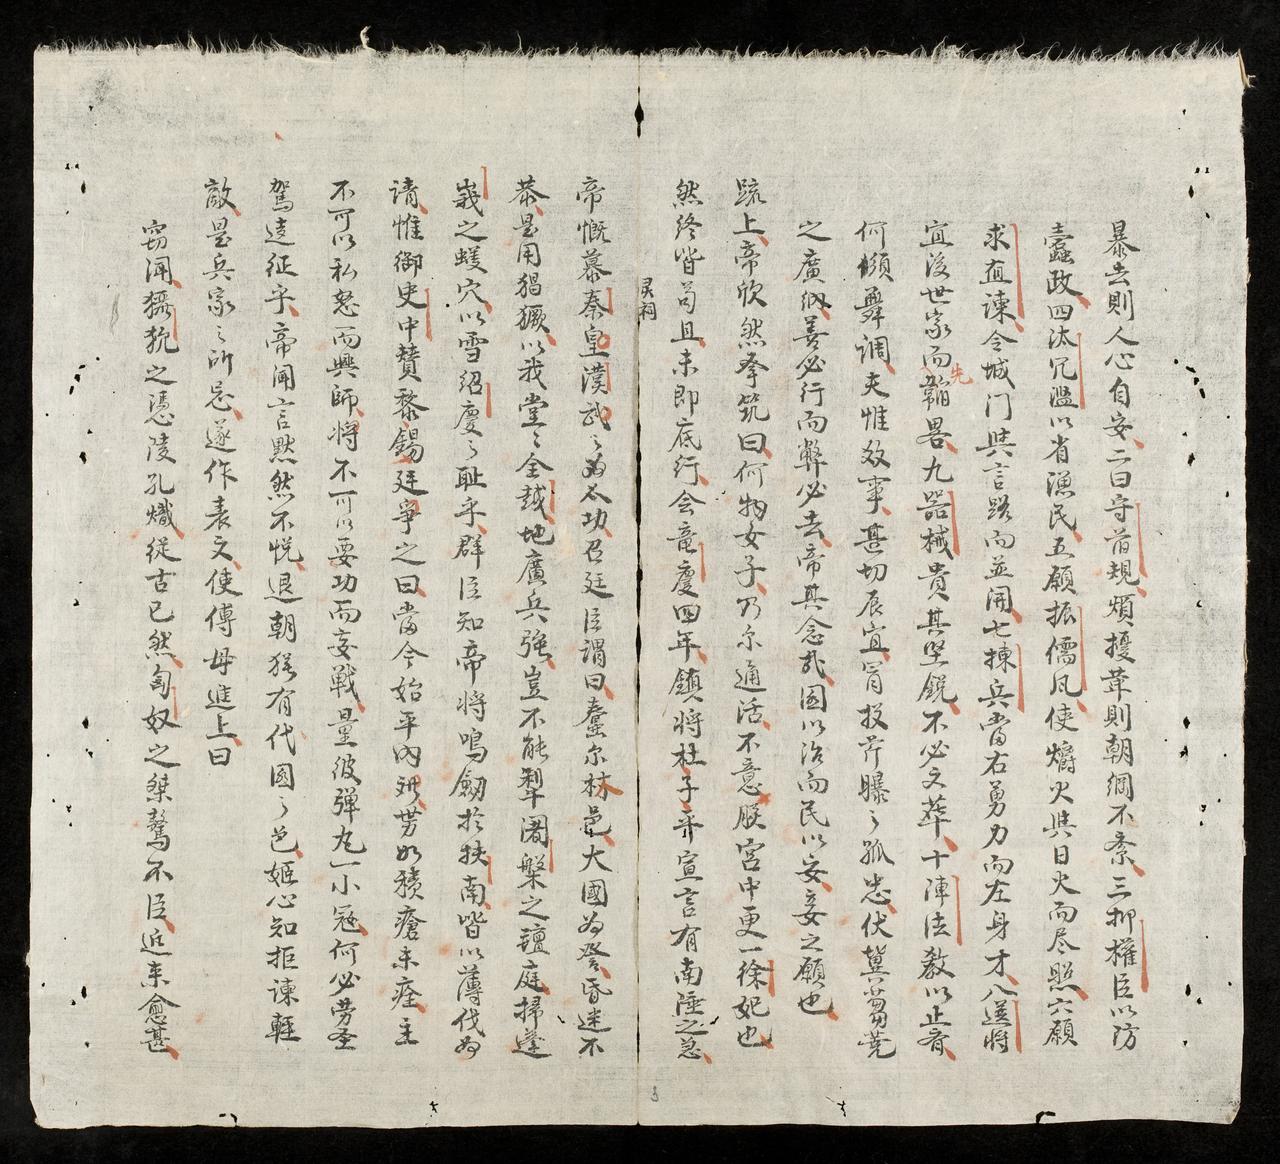 暴去則人心自安二曰守旧規煩擾革則朝綱不紊三抑權臣以防
蠹政四汰冗濫以省漁民五願振儒凬使爝火與日火而尽照六願
求直諫令城门與言路而並開七揀兵當右勇力而左身才八選将
宜後世家而先韜畧九器械貴其堅鋭不必文華十陣法教以正奇
何㒹舞調夫惟效事甚切辰宜冐投芹曝之孤忠伏冀蒭蕘
之廣納善必行而弊必去帝其念哉国以治而民以安妾之願也
疏上帝欣然拳筑曰何物女子乃尔通活不意朕宮中更一徐妃也
然終皆苟且未即底行会竜慶四年鎮将杜子平宣言有南陲之急
灵祠
帝慨慕秦皇漢武之为太功召廷臣謂曰蠢尔林邑大國为登昏迷不
恭是用猖獗以我堂々全越地廣兵強豈不能犁闍槃之䃪庭掃蓬
峩之蟻穴以雪紹慶之耻乎群臣知帝将鳴劒扵扶南皆以薄伐为
请惟御史中賛黎錫廷爭之曰當今始平内难劳如積瘡未痊主
不可以私怒而興師将不可以要功而妄戰量彼弾丸一小冦何必劳圣
駕逺征乎帝聞言默然不悅退朝猶有代國之色姬心知拒諫輕
敵是兵家之所忌遂作表文使傅母進上曰
窃聞玁狁之憑陵孔熾従古已然匈奴之桀驁不臣近来愈甚